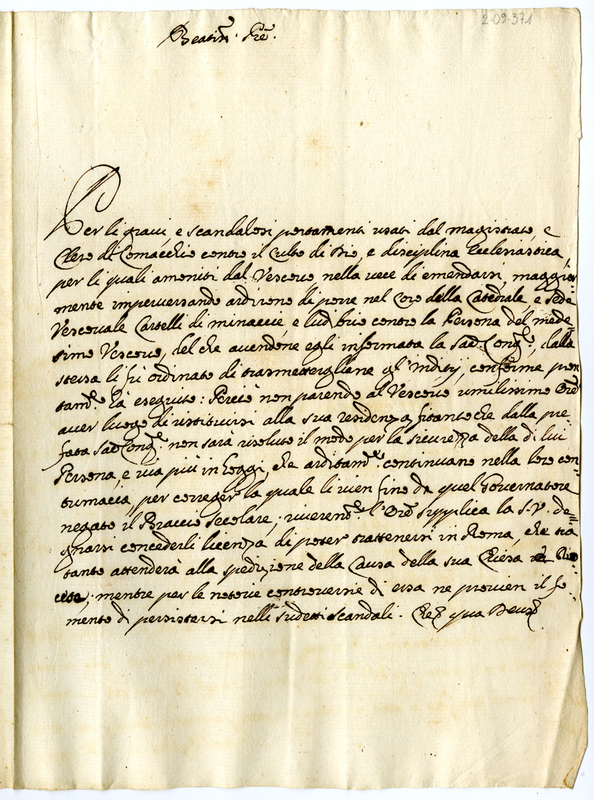 2-09-371
Beatm̃o Pre.
Per li gravi e scandalosi portamenti usati dal magistrato, e
Clero di Comacchio contro il Culto di Dio, e disciplina Ecclesiastica,
per li quali amoniti dal Vescovo nella vece di emendarsi, maggior
mente imperversando ardirono di porre nel Coro della Catedrale e Sede
Vescovale Cartelli di minaccie, e ludibrio contro la Persona del mede=
simo Vescovo, del che avendone egli informata la Sac. Cong.e, dalla
stessa li fù ordinato di trasmettergliene gl'Inditij, conforme pron
tam.e hà eseguito: Perciò non parendo al Vescovo umilissimo Ore
aver luogo di restituirsi alla sua residenza fintanto che dalla pre
fata Sac. Cong.e non sarà risoluto il modo per la sicurezza della di lui
Persona, e via più in oggi, che arditam.e continuano nella loro con
tumacia, per correger la quale li vien fino da quel Governatore
negato il Braccio secolare; riverem.e l'Ore supplica la S.V. de=
gnarsi concederli licenza di poter trattenersi in Roma, che tra
tanto attenderà alla spedizione della Causa della sua Chiesa
mentre per le notorie controversie di essa ne provien il fo=
mento di persistersi nelli sudetti scandali. Che